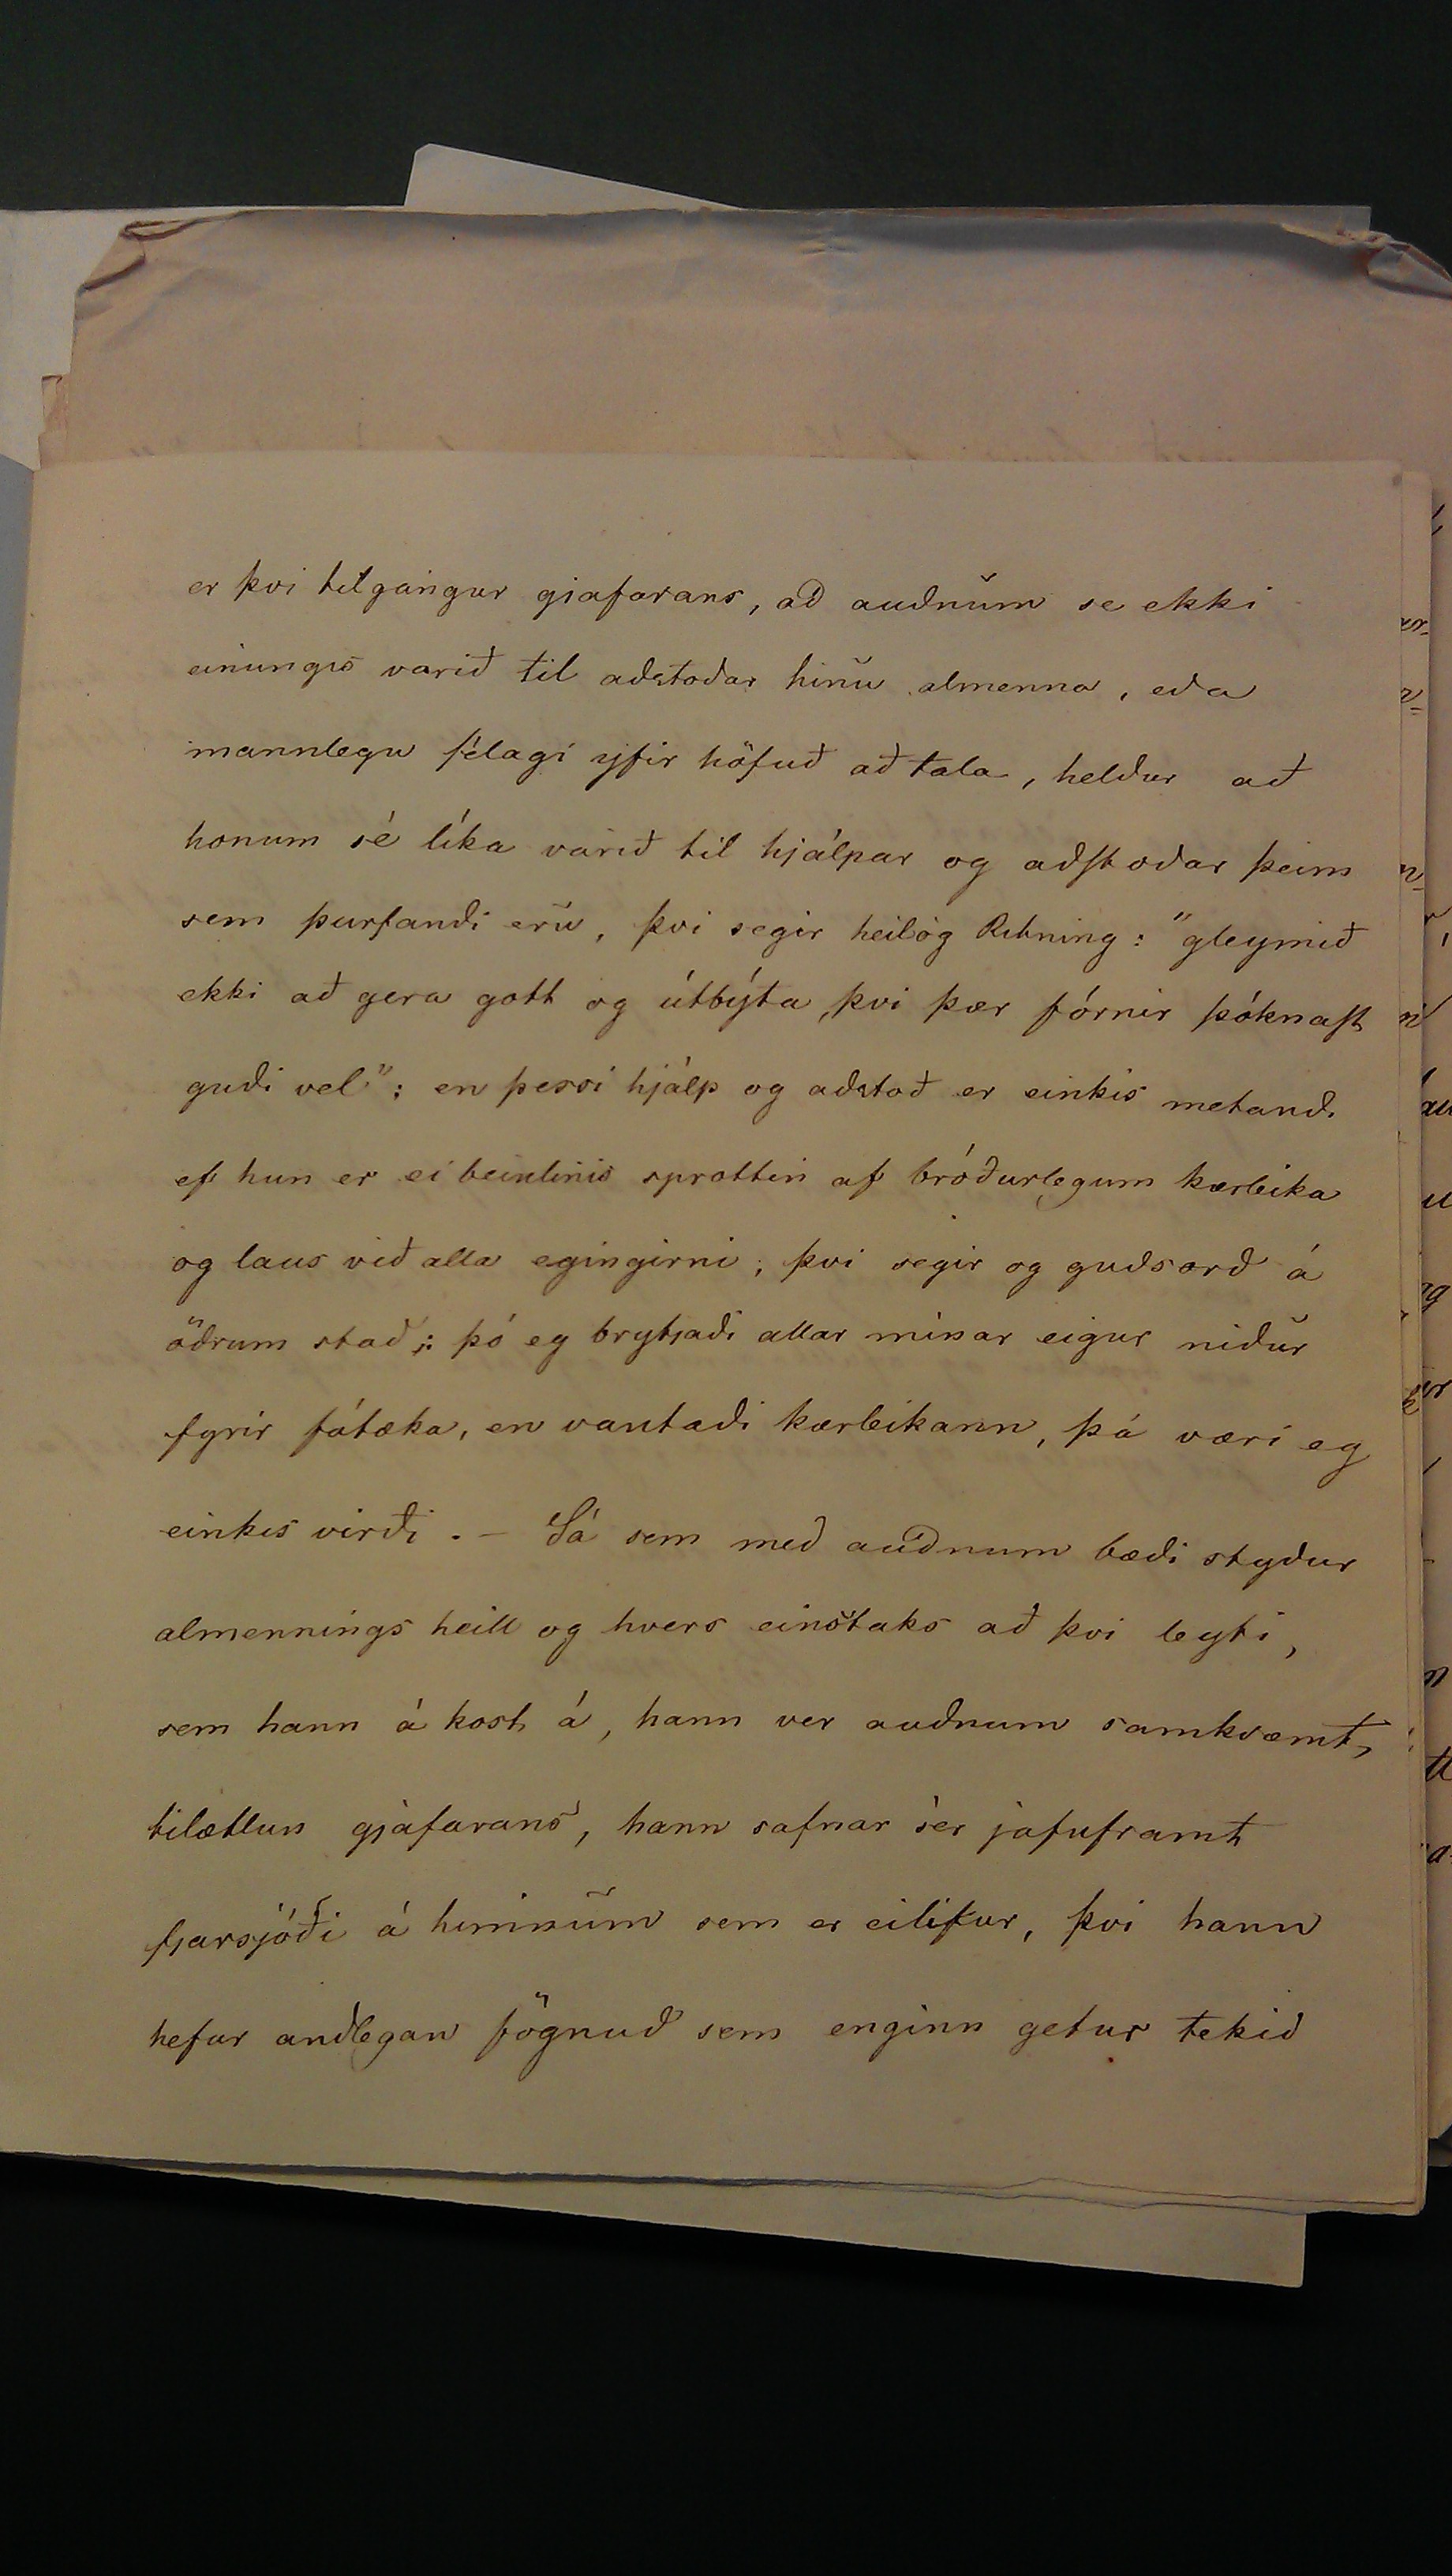 er þvi tilgangur gjafarans, að auðnum se ekki
einungis varið til aðstoðar hinu almenna, eða
mannlegu félagi yfir höfuð að tala, heldur að
honum sé líka varið til hjálpar og aðstoðar þeim
sem þurfandi eru, þvi segir heilög Ritning: "gleymið
ekki að gera gott og útbýta, þvi þær fórnir þóknast
guði vel": en þessi hjálp og aðstoð er einkis metandi
ef hun er ei beinlinis sprottin af bróðurlegum kærleika
og laus við alla egingirni, þvi segir og guðsorð á
öðrum stað: þó eg brytjaði allar minar eigur niður
fyrir fátæka, en vantaði kærleikann, þá væri eg
einkis virði. – Sá sem með auðnum bæði styður
almennings heill og hvers einstaks að þvi leyti,
sem hann á kost á, hann ver auðnum samkvæmt,
tilætlun gjafarans, hann safnar sér jafnframt
fjarsjóði á himnum sem er eilifur, þvi hann
hefur andlegan fögnuð sem enginn getur tekið